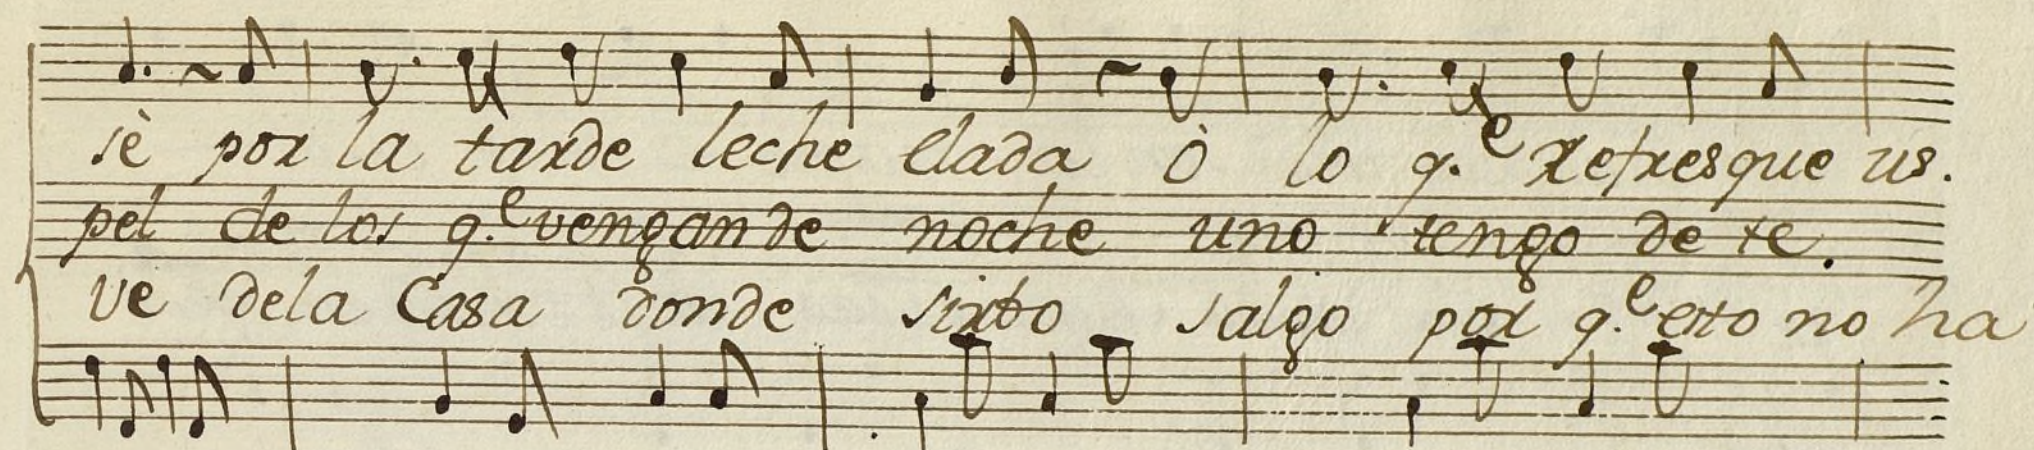 sè por la tarde leche elada ò lo q.e refresque us.
pel de los q.e vengan de noche uno tengo de te.
ve dela Casa donde sirbo salgo por q.e esto no ha